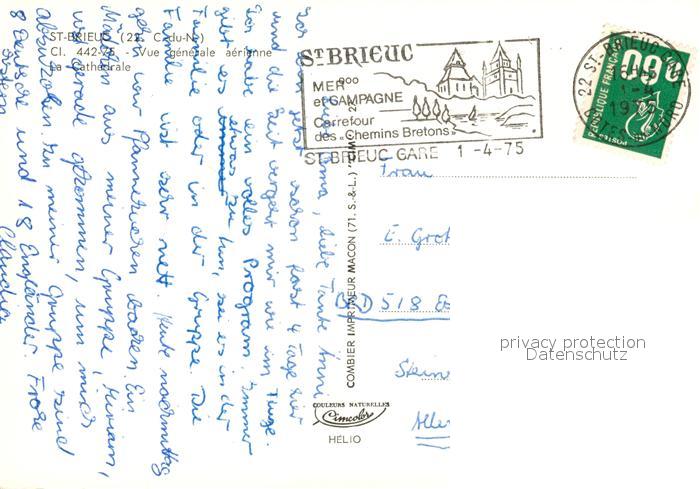 ST-BRIEUC (22. C.-du-N.)
Cl. 442-75 - Vue générale aérienne
La Cathédrale
ST BRIEUC
MER
et CAMPAGNE
Carrefour
des «Chemins Bretons»
ST-BRIEUC GARE 1 -4-75
22 ST-BRIEUC GARE
1-4
1975
0,60
REPUBLIQUE FRANÇAISE
POSTES
COMBIER IMPRIMEUR MACON (71. S.-&-L.) "CIM"
COULEURS NATURELLES
Cimcolor
HÉLIO
Frau
E. Grot
BRD 518 Es
Stein
Alle
privacy protection
Datenschutz
Oma, liebe Tante Anni
jetzt schon fast 4 Tage hier
und die Zeit vergeht mir wie im Fluge.
Ich habe ein volles Program. Immer
gibt es etwas zu tun, sei es in der
Familie oder in der Gruppe. Die
Familie ist sehr nett. Heute nachmittag
wir Pfannekuchen backen. Ein
Mädchen aus meiner Gruppe, Miriam,
gerade gekommen, um mich
abzuholen. In meiner Gruppe sind
8 Deutsche und 18 Engländer. Frohe
Ostern
Claudia